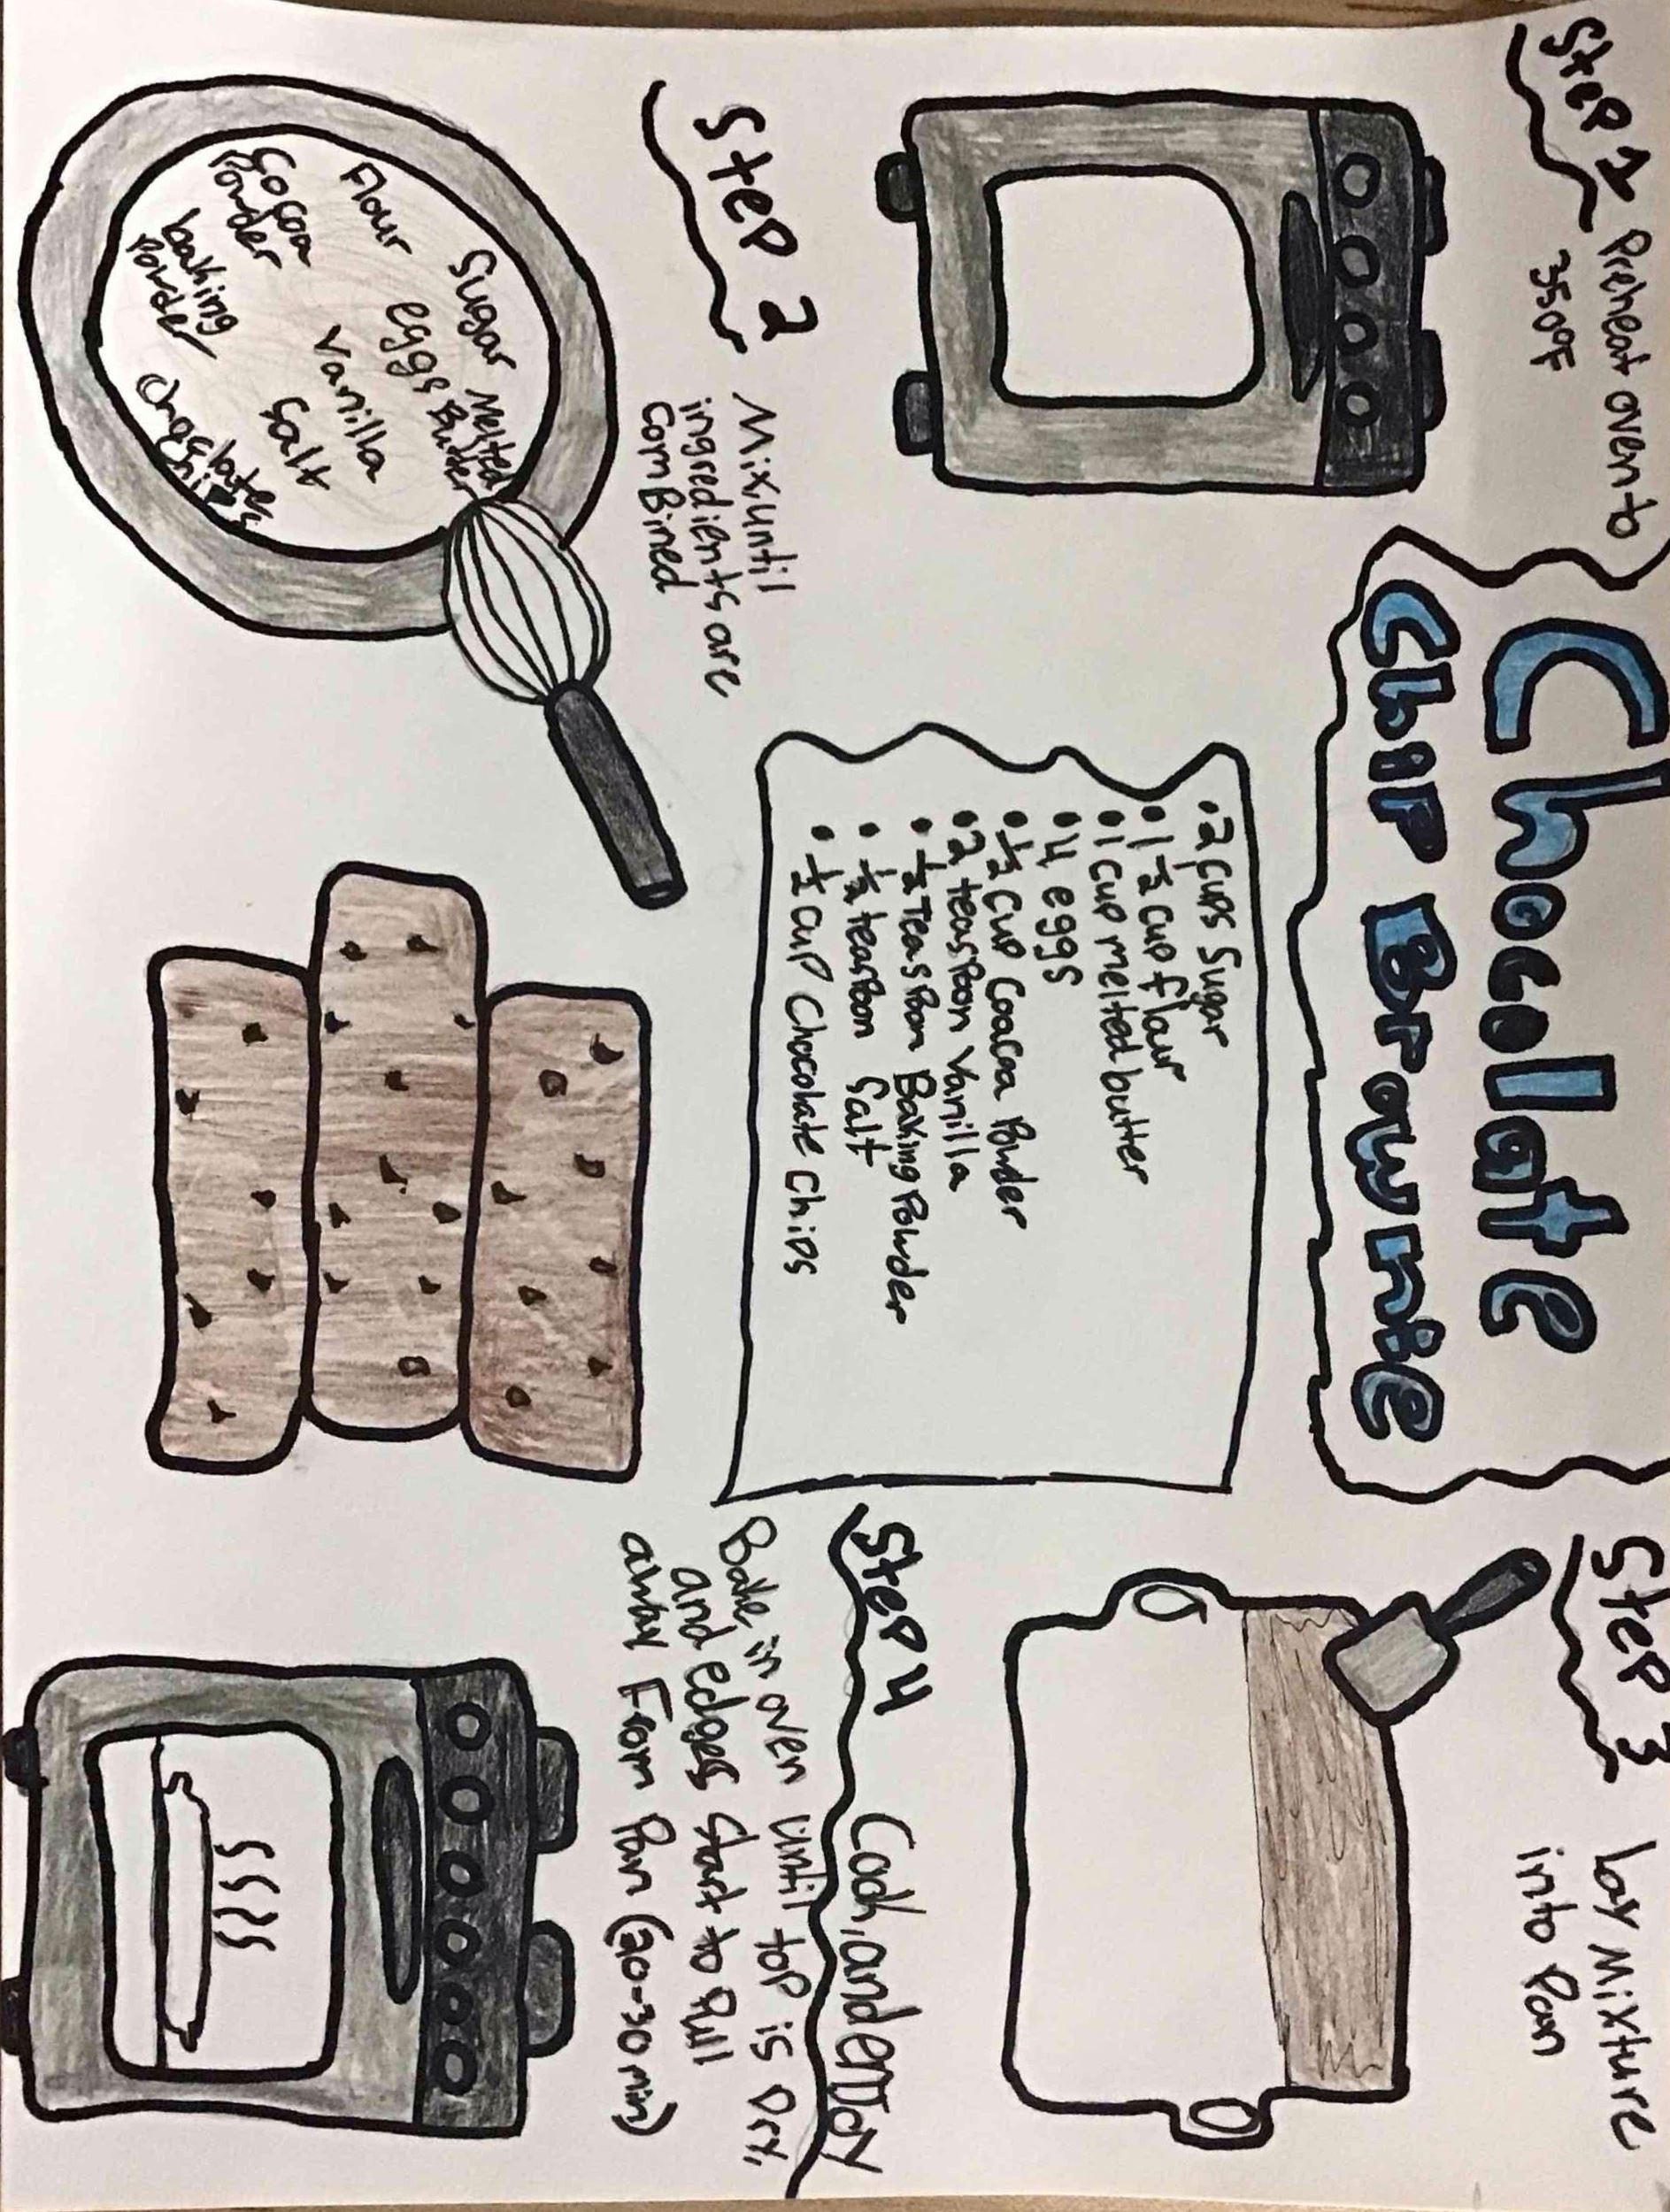 Chocolate
Chip Brownie
Step 1 Preheat oven to
350°F
Step 2 Mix, until
ingredients are
ComBined
Sugar Melted
Butter
eggs
Flour
Vanilla
Salt
Cocoa
Powder
baking
Powder
Chocolate
Chips
• 2 cups Sugar
• 1 ½ cup flaur
• 1 cup melted butter
• 4 eggs
• ½ cup Coacoa Powder
• 2 teasPoon Vanilla
• ½ TeasPoon Baking Powder
• ½ teasPoon Salt
• ½ cup Chocolate Chips
Step 3 lay Mixture
into Pan
Step 4 Cook, and enJoy
Bake in oven until top is Dry,
and edges Start to Pull
away From Pan (20-30 min)